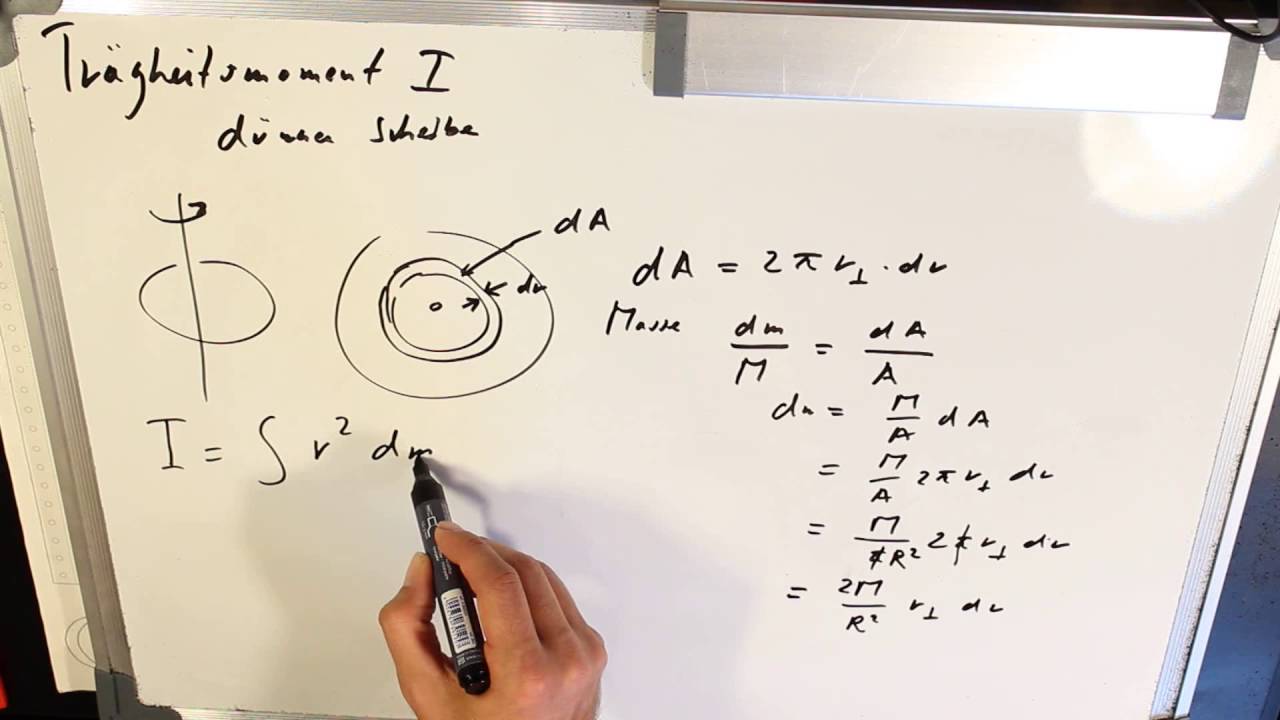 Trägheitsmoment I
dünner Scheibe
dA
dr
I = ∫ r² dm
dA = 2π r⊥ · dr
Masse dm/M = dA/A
dm = M/A dA
= M/A 2π r⊥ dr
= M/πR² 2π r⊥ dr
= 2M/R² r⊥ dr